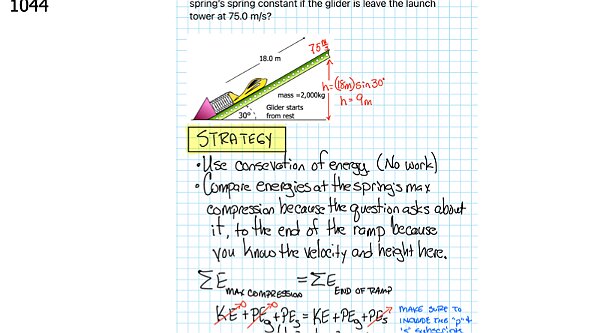 1044
spring's spring constant if the glider is leave the launch
tower at 75.0 m/s?
75 m/s
18.0 m
h=(18m)sin30°
h=9m
mass =2,000kg
Glider starts
from rest
30°
STRATEGY
• Use consevation of energy (No work)
• Compare energies at the spring's max
compression because the question asks about
it, to the end of the ramp because
you know the velocity and height here.
ΣE MAX COMPRESSION = ΣE END OF RAMP
KE→0 + PEg→0 + PEs = KE + PEg + PEs→0
MAKE SURE TO
INCLUDE THE "p" &
"s" subscripts